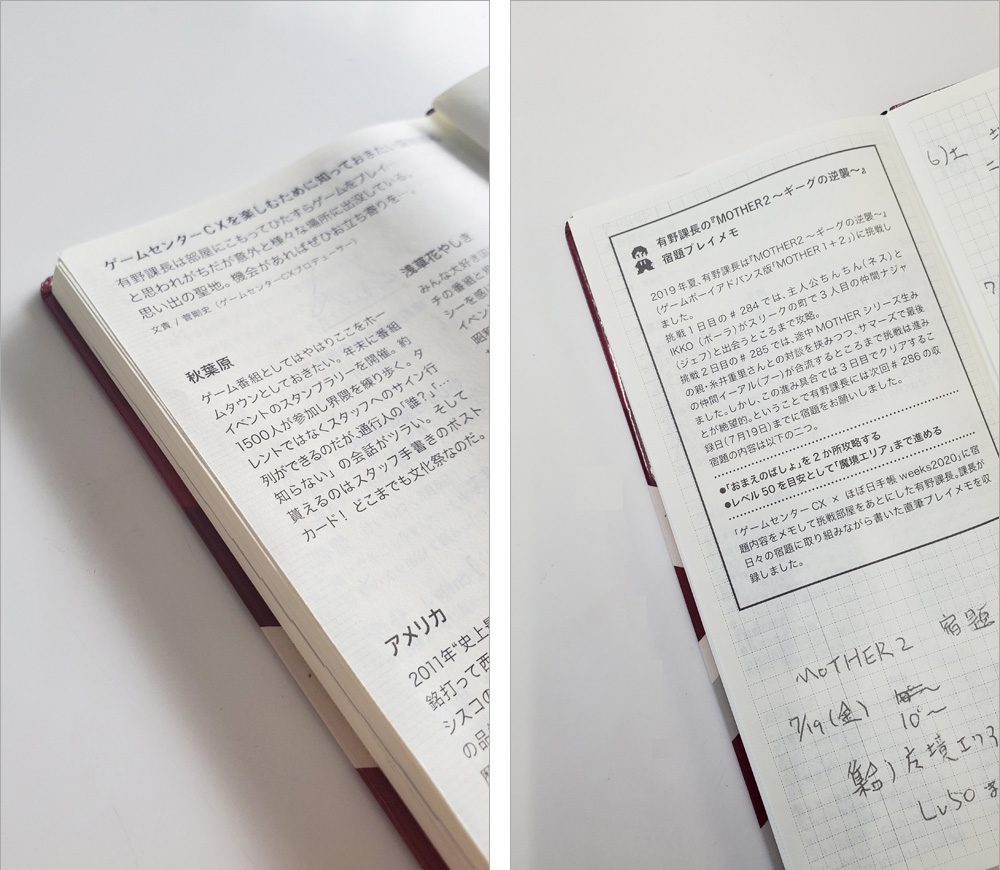 ゲームセンターCXを楽しむために知っておきたい
有野課長は部屋にこもってひたすらゲームをプレイ
と思われがちだが意外と様々な場所に出没している。
思い出の聖地。機会があればぜひお立ち寄りを…
文責 / 菅剛史（ゲームセンターCXプロデューサー）
秋葉原
ゲーム番組としてはやはりここをホー
ムタウンとしておきたい。年末に番組
イベントのスタンプラリーを開催。約
1500人が参加し界隈を練り歩く。タ
レントではなくスタッフへのサイン行
列ができるのだが、通行人の「誰？」「…
知らない」の会話がツラい。そして
貰えるのはスタッフ手書きのポスト
カード！ どこまでも文化祭なのだ。
浅草花やしき
みんな大好き
手の番組と
シーを感じ
イベン
昭和
アメリカ
2011年“史上最
銘打って西
シスコの
の品
有野課長の『MOTHER２〜ギーグの逆襲〜』
宿題プレイメモ
2019年夏、有野課長は『MOTHER2 〜ギーグの逆襲〜』
（ゲームボーイアドバンス版「MOTHER 1＋2」）に挑戦し
ました。
挑戦1日目の＃284では、主人公ちんちん（ネス）と
IKKO（ポーラ）がスリークの町で3人目の仲間ナジャ
（ジェフ）と出会うところまで攻略。
挑戦2日目の＃285では、途中MOTHERシリーズ生み
の親・糸井重里さんとの対談を挟みつつ、サマーズで最後
の仲間イーアル（プー）が合流するところまで挑戦は進み
ました。しかし、この進み具合では3日目でクリアするこ
とが絶望的。ということで有野課長には次回＃286の収
録日（7月19日）までに宿題をお願いしました。
宿題の内容は以下の二つ。
●「おまえのばしょ」を2か所攻略する
●レベル50を目安として「魔境エリア」まで進める
「ゲームセンターCX × ほぼ日手帳 weeks2020」に宿
題内容をメモして挑戦部屋をあとにした有野課長。課長が
日々の宿題に取り組みながら書いた直筆プレイメモを収
録しました。
MOTHER2 宿題
7/19(金)
10°〜
集合)
Lv50
6)土